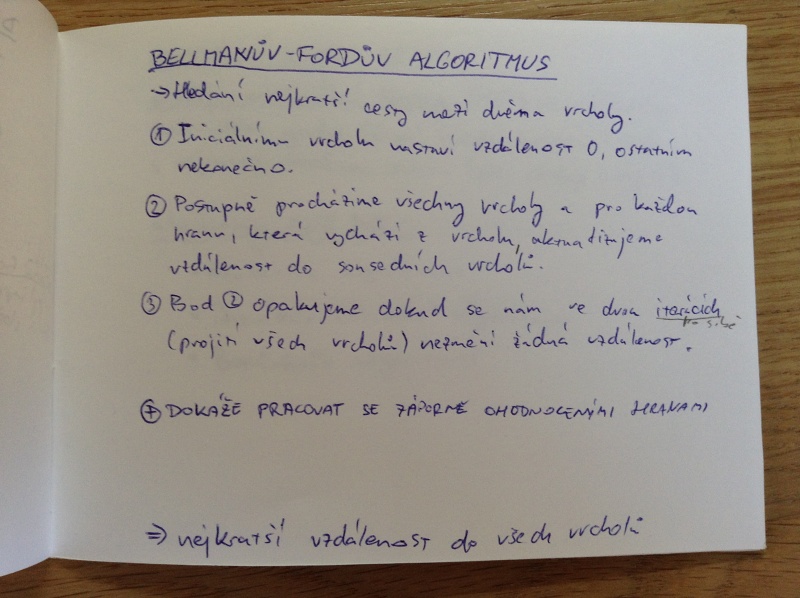 BELLMANŮV-FORDŮV ALGORITMUS
→ Hledání nejkratší cesty mezi dvěma vrcholy.
① Iniciálnímu vrcholu nastaví vzdálenost 0, ostatním
nekonečno.
② Postupně procházíme všechny vrcholy a pro každou
hranu, která vychází z vrcholu, aktualizujeme
vzdálenost do sousedních vrcholů.
③ Bod ② opakujeme dokud se nám ve dvou iteracích
po sobě
(projití všech vrcholů) nezmění žádná vzdálenost.
⊕ DOKÁŽE PRACOVAT SE ZÁPORNĚ OHODNOCENÝMI HRANAMI
⇒ nejkratší vzdálenost do všech vrcholů